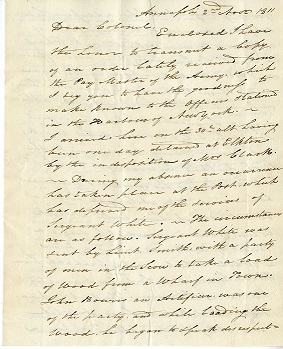 Annapolis 2nd Nov. 1811
Dear Colonel, Enclosed I have
the honor to transmit a Copy
of an order lately received from
the Pay Master of the Army, which
I beg you to have the goodness to
make known to the Officers Stationed
in the Harbour of New York. —
I arrived here on the 30th ult. having
been one day detained at Elkton
by the indisposition of Mrs Clark.
— During my absence an occurrence
has taken place at the Post, which
has deprived me of the services of
Sergeant White. — The circumstances
are as follow. Sergeant White was
sent by Lieut. Smith with a party
of men in the Scow to take a load
of Wood from a Wharf in Town.
John Bowns an Artificer, was one
of the party, and while loading the
Wood, he began to speak disrespect-